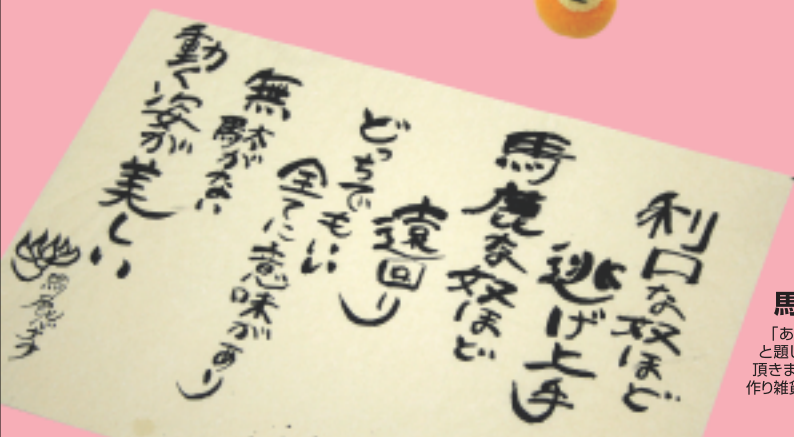 利口な奴ほど
逃げ上手
馬鹿な奴ほど
遠回り
どっちでもいい
全てに意味があり
無駄がない
動く姿が美しい
馬
「あ
と題し
頂きま
作り雑貨